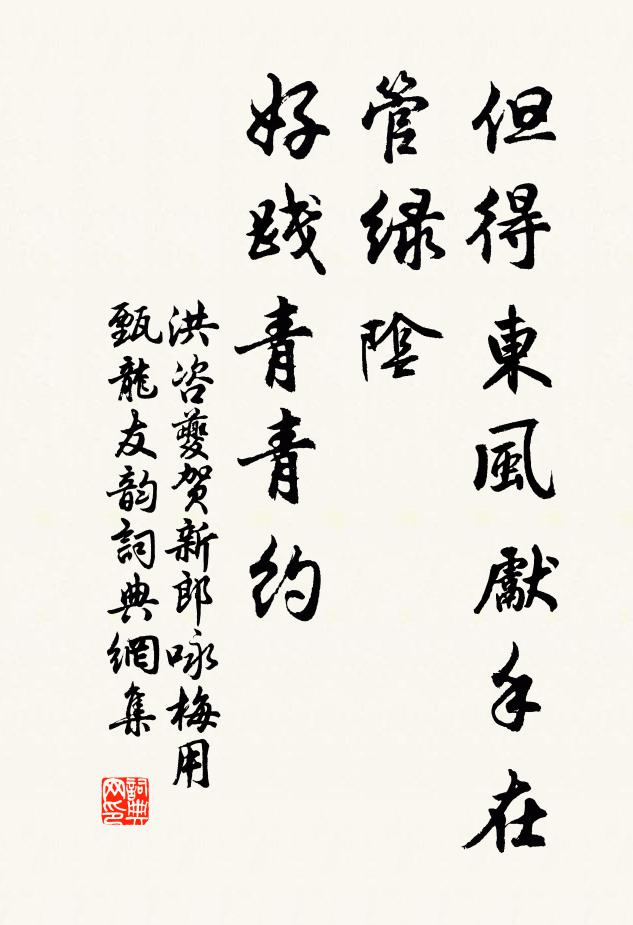 但得東風獻手在
管绿陰
好践青青約
洪咨夔贺新郎咏梅用
甄龍友韵詞典網集
詞典
网印